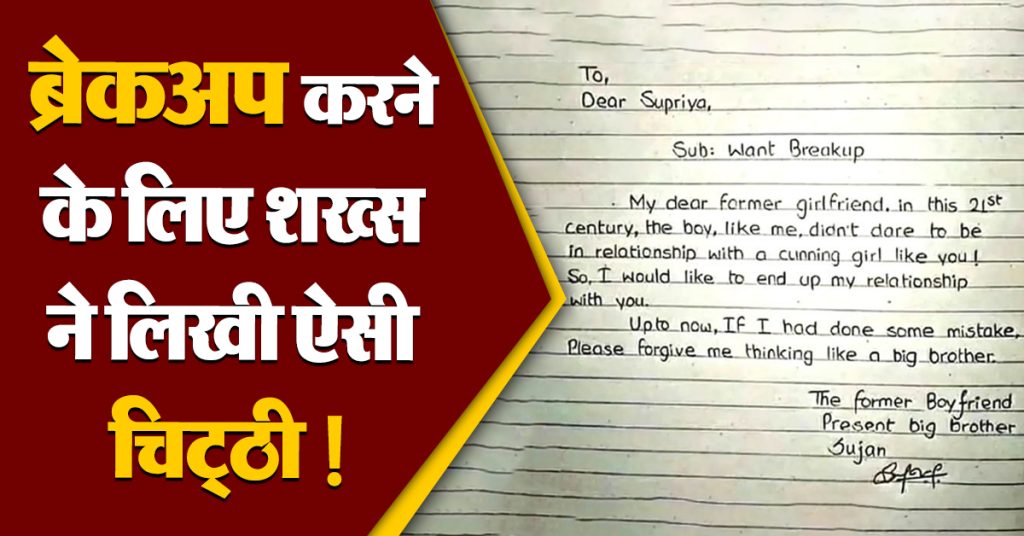 ब्रेकअप करने
के लिए शख्स
ने लिखी ऐसी
चिट्ठी !
To,
Dear Supriya,
Sub: Want Breakup
My dear former girlfriend, in this 21st
century, the boy, like me, didn't dare to be
in relationship with a cunning girl like you!
So, I would like to end up my relationship
with you.
Upto now, If I had done some mistake,
Please forgive me thinking like a big brother.
The former Boyfriend
Present big brother
Sujan